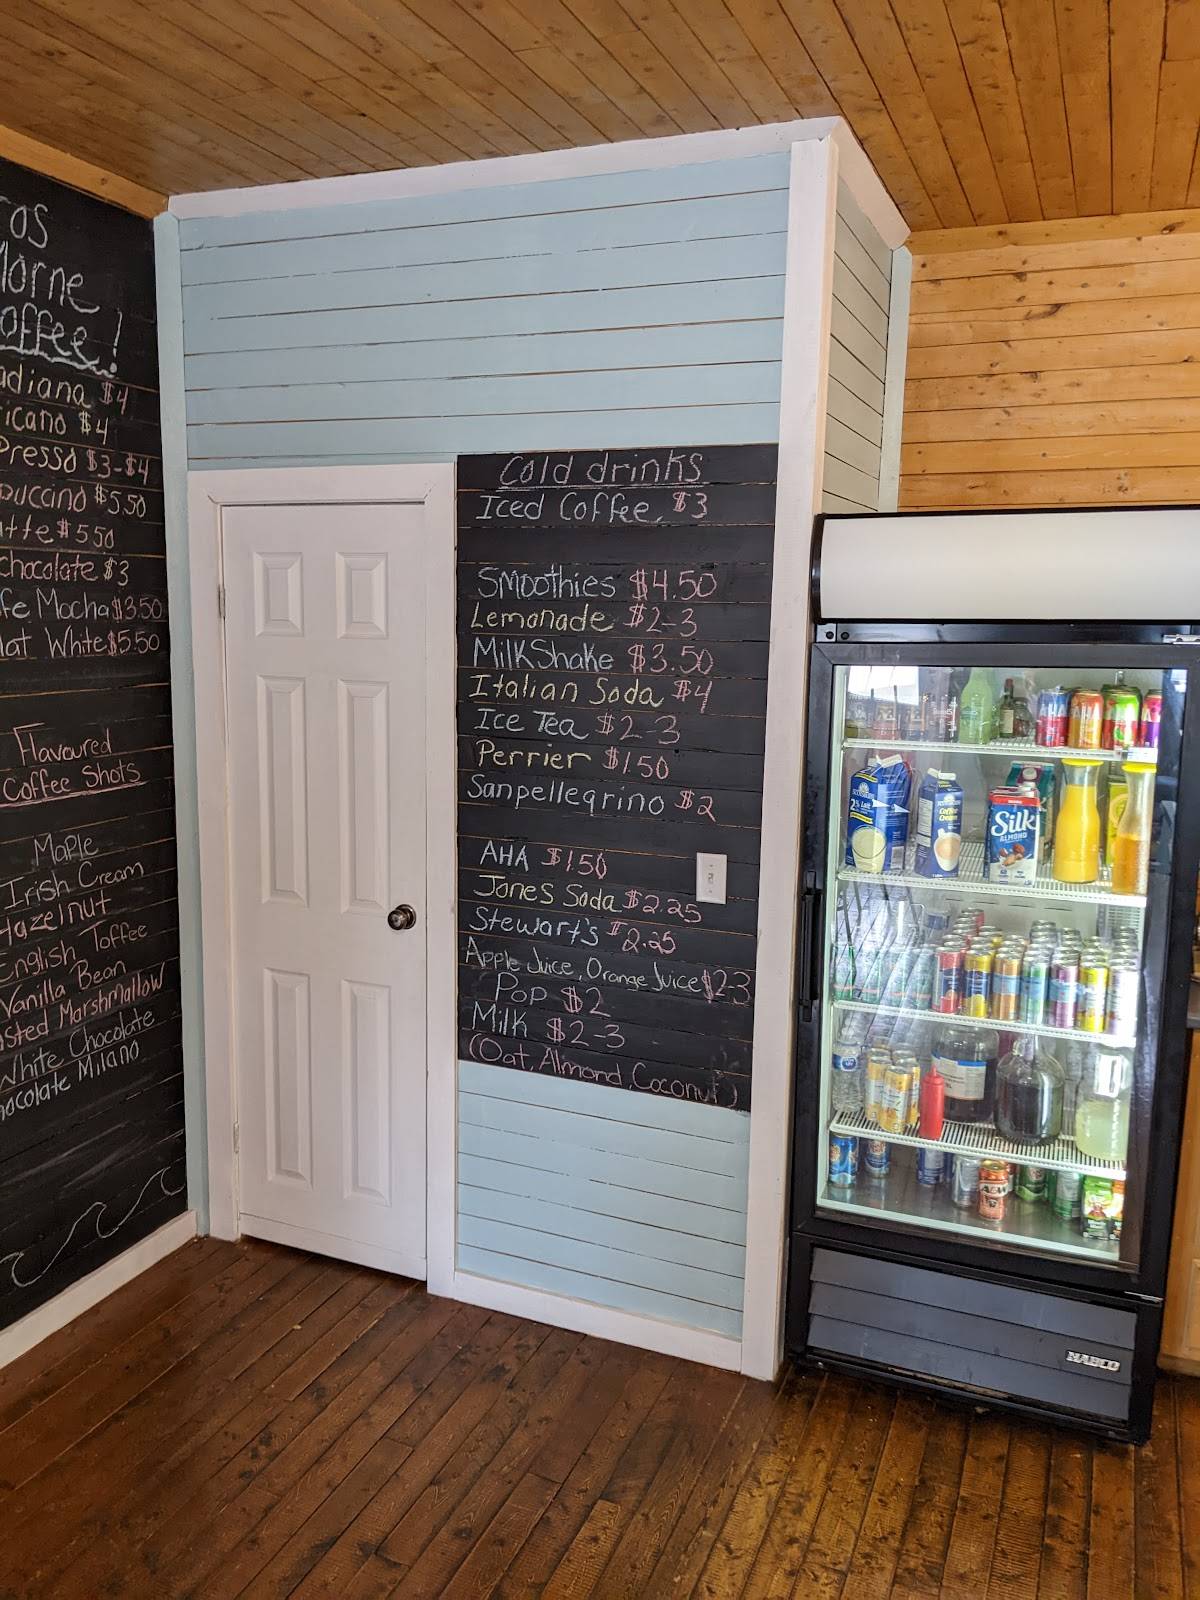 Morne
offee!
adiana $4
ricano $4
Presso $3-$4
puccino $5.50
tte $5.50
chocolate $3
fe Mocha $3.50
lat White $5.50
Flavoured
Coffee Shots
Maple
Irish Cream
Hazelnut
English Toffee
Vanilla Bean
sted Marshmallow
White Chocolate
hocolate Milano
Cold drinks
Iced Coffee $3
Smoothies $4.50
Lemonade $2-3
MilkShake $3.50
Italian Soda $4
Ice Tea $2-3
Perrier $1.50
Sanpellegrino $2
AHA $1.50
Jones Soda $2.25
Stewart's $2.25
Apple Juice, Orange Juice $2-3
Pop $2
Milk $2-3
(Oat, Almond, Coconut)
AHA
AHA
2%
Coffee
Cream
Silk
ALMOND
A&W
MABCO